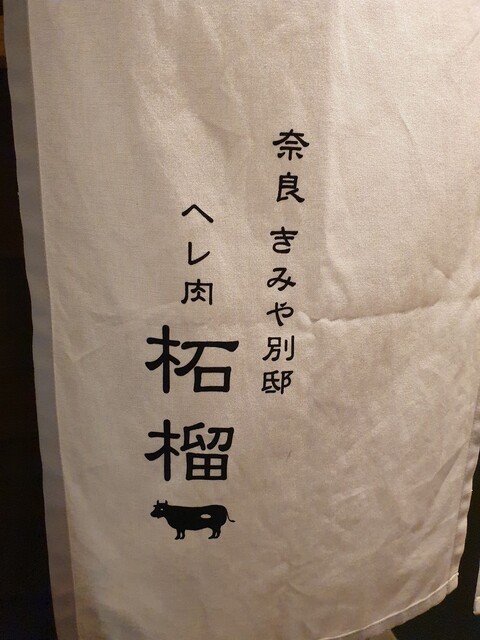 奈良 きみや別邸
ヘレ肉
柘榴